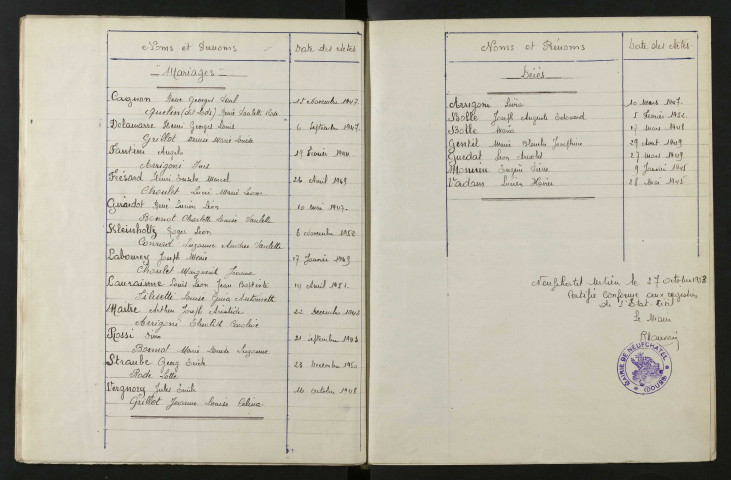 Noms et Prénoms Date des Actes
Mariages
Cagnon Georges Paul 15 Novembre 1947
Delamarre Henri Georges Louis 6 Septembre 1947
Grillot Denise Marie Louise
Fantini Angelo 19 Février 1944
Arrigoni
Frésard Henri Marcel 26 Avril 1949
Choulet Marie
Girardot René Lucien Léon 10 Mai 1947
Bonnot Charlotte Louise Paulette
Kleinholtz Roger Léon 8 Novembre 1952
Conrad Suzanne Andrée Paulette
Labourey Joseph Marie 17 Janvier 1949
Choulet Marguerite Jeanne
Louis Léon Jean Baptiste 10 Avril 1951
Louise Antoinette
Maitre Arthur Joseph Aristide 22 Décembre 1945
Arrigoni
Rossi 21 Septembre 1943
Bonnot Marie Louise Suzanne
Straube Georg 23 Décembre 1950
Rode
Vergnory Jules Emile 14 Octobre 1948
Grillot Jeanne Louise
Noms et Prénoms Date des Actes
Décès
Arrigoni 10 Mars 1947
Bolle Joseph Auguste Edouard 5 Février 1952
Bolle Maria 17 Mars 1948
Gentet Marie Blanche Joséphine 29 Août 1949
Guedat Léon 27 Mars 1949
Eugène Pierre 9 Janvier 1945
Vadam Lucien 28 Mai 1945
Neufchatel Urtière le 27 Octobre 1953
Certifié conforme aux registres
de l'Etat Civil
Le Maire
MAIRIE DE NEUFCHATEL (DOUBS)